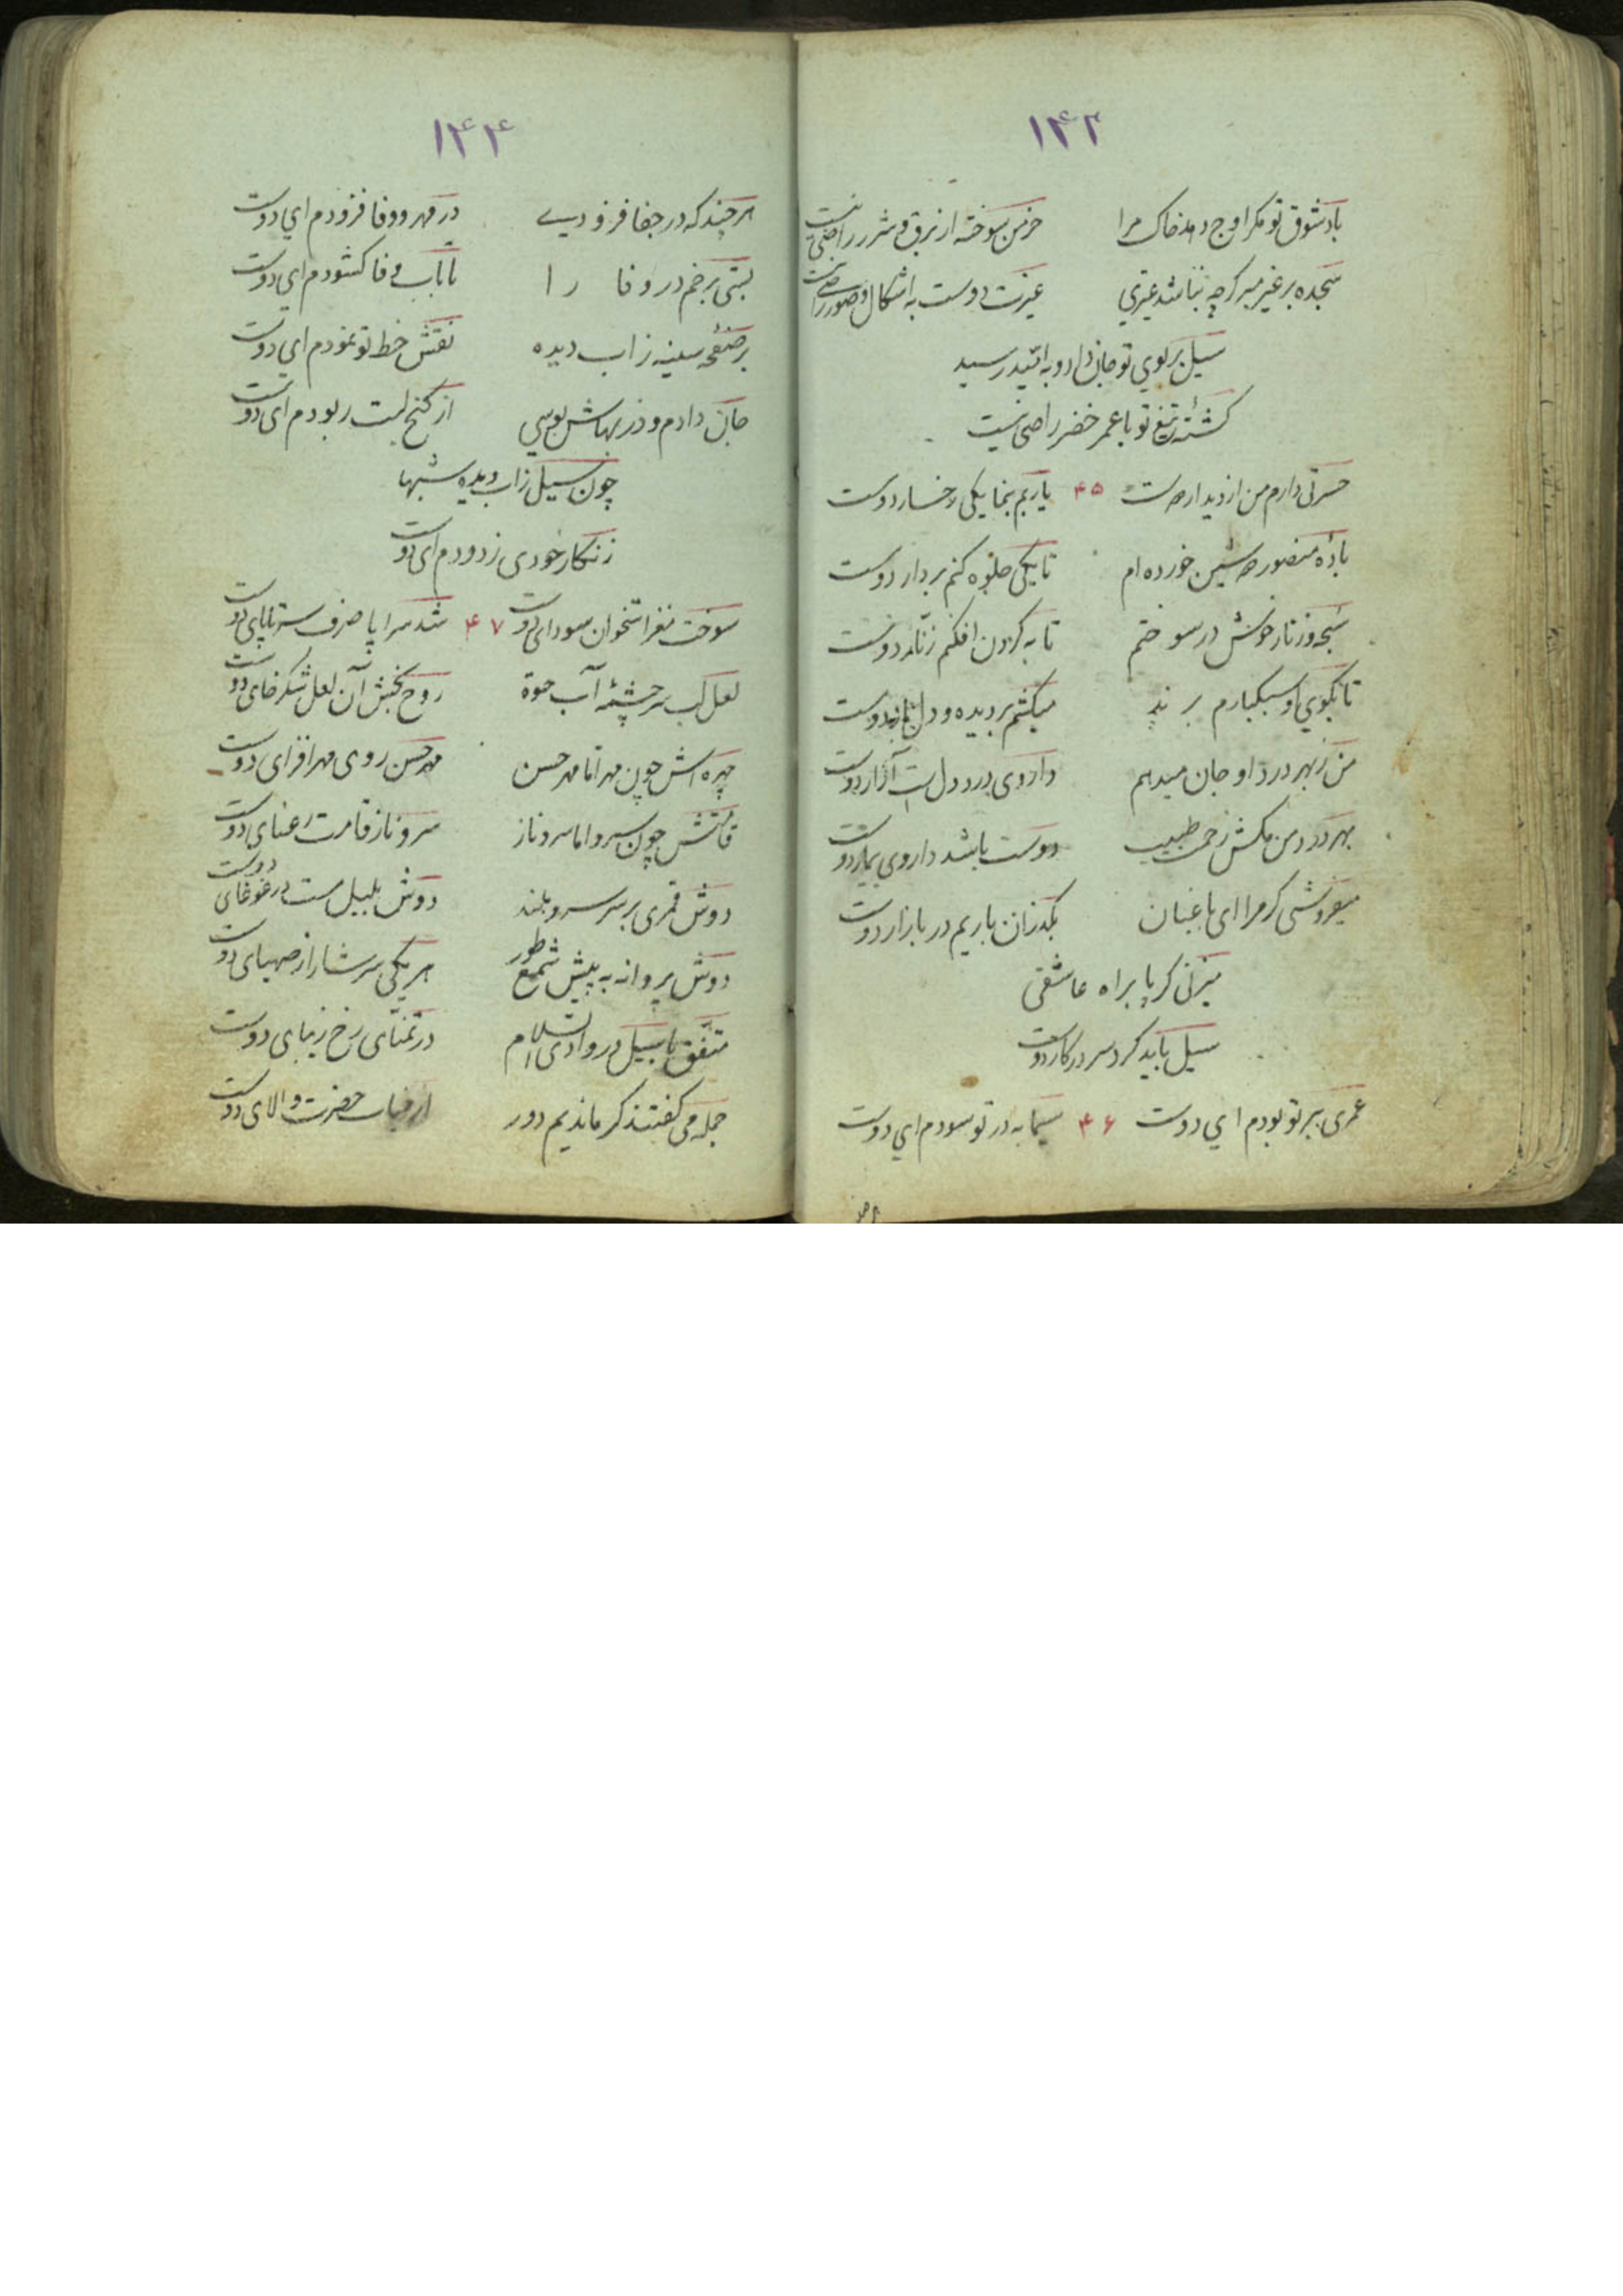 ۱۴۲
باد شوق تو مگر اوج دهد خاک مرا خرمن سوخته از برق و شرر راضی نیست
سجده بر غیر مبر گرچه نباشد غیری غیرت دوست به اشکال و صور راضی نیست
سیل بر کوی تو جان داد و به امید رسید
کشته تیغ تو با عمر خضر راضی نیست
حسرتی دارم من از دیدار دوست ۴۵ یا ربم بنما یکی رخسار دوست
باده منصور هر شین خورده ام تا یکی جلوه کنم بر دار دوست
سبحه و زنار خویش در سوختم تا به گردن افکنم زنار دوست
تا بکوی او سبکبارم برند میکشم بر دیده و دل بار دوست
من ز بهر درد او جان میدهم داروی درد دل است آزار دوست
بهر درد من مکش زحمت طبیب دوست باشد داروی بیمار دوست
میفروشی گر مرا ای باغبان بگذران باریم در بازار دوست
میزنی گر پا براه عاشقی
سیل باید کرد سر در کار دوست
عمری ببر تو بودم ای دوست ۴۶ سیما به در تو سودم ای دوست
۱۴۴
هر چند که در جفا فزودی در مهر و وفا فزودم ای دوست
بستی برخم در وفا را تا باب وفا کشودم ای دوست
بر صفحه سینه ز اب دیده نقش خط تو نمودم ای دوست
جان دادم و در بهاش بوسی از کنج لبت ربودم ای دوست
چون سیل ز اب دیده شبها
زنگار خودی زدودم ای دوست
سوخت مغز استخوان سودای دوست ۴۷ شد سراپا صرف سر تا پای دوست
لعل لب سرچشمه آب حیوة روح بخش آن لعل شکرخای دوست
چهره اش چون مهر اما مهر حسن مهر حسن روی مهر افزای دوست
قامتش چون سرو اما سرو ناز سرو ناز قامت رعنای دوست
دوش قمری بر سر سرو بلند دوش بلبیل مست در غوغای دوست
دوش پروانه به پیش شمع طور هر یکی سرشار از صهبای دوست
متفق با سیل در وادی السلام در تمنای رخ زیبای دوست
جمله می گفتند گر ماندیم دور از حضرت والای دوست
هر